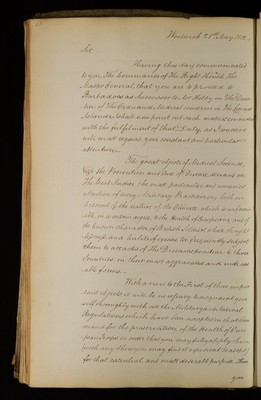 Woolwich 25th May 18
Sir,
Having this day communicated
to you the Commands of The Right Honble The
Master General, that you are to proceed to
Barbadoes as Successor to Dr on the
of the Ordnance Medical in the
Islands, I shall now point out such matters connected
with the fulfilment of that Duty, as I conceive
will most require your constant and particular
attention.
The great objects of Medical Science,
viz the Prevention and Cure of Disease, demand in
The West Indies the most particular and unwearied
attention of every Military Practitioner, both on
account of the nature of the Climate, which is
in a certain degree to the Health of Europeans, and of
the known character of British Soldiers whose thoughtless
and habits of excess so frequently subject
them to attacks of the Diseases peculiar to those
Countries in their most aggravated and
able forms.
With a view to the First of these import
ant objects it will be necessary to acquaint your
self thoroughly with all the Military and
Regulations which have been adopted in that Com
mand for the preservation of the Health of Euro
pean Troops in order that you may fully apply them
(with any others you may find it expedient to adopt)
for that essential, and most desirable purpose. Thus
you